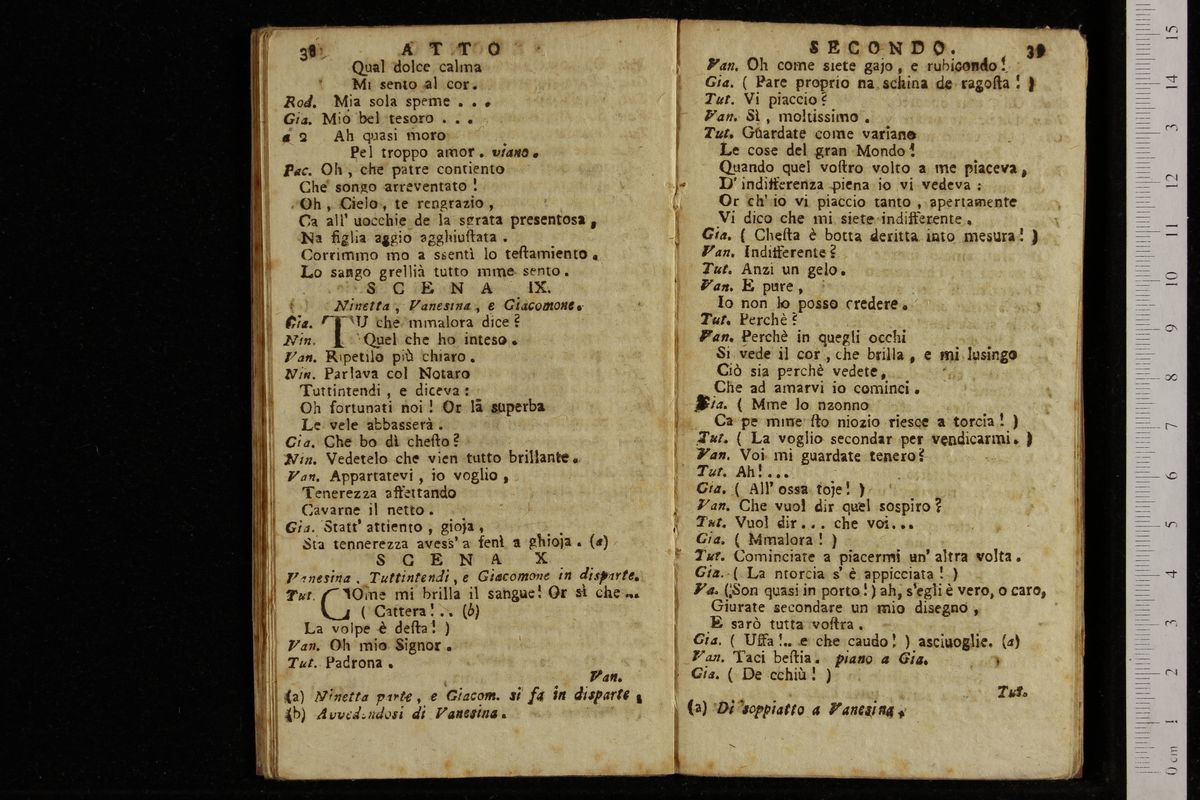 38 ATTO
Qual dolce calma
Mi sento al cor.
Rod. Mia sola speme . . .
Gia. Mio bel tesoro . . .
a 2 Ah quasi moro
Pel troppo amor. viano.
Pac. Oh, che patre contiento
Che songo arreventato!
Oh, Cielo, te rengrazio,
Ca all' uocchie de la sgrata presentosa,
Na figlia aggio agghiuſtata.
Corrimmo mo a ssentì lo teſtamiento.
Lo sango grellià tutto mme sento.
SCENA IX.
Ninetta, Vanesina, e Giacomone.
Gia. TU che mmalora dice?
Nin. Quel che ho inteso.
Van. Ripetilo più chiaro.
Nin. Parlava col Notaro
Tuttintendi, e diceva:
Oh fortunati noi! Or la superba
Le vele abbasserà.
Gia. Che bo dì cheſto?
Nin. Vedetelo che vien tutto brillante.
Van. Appartatevi, io voglio,
Tenerezza affettando
Cavarne il netto.
Gia. Statt' attiento, gioja,
Sta tennerezza avess' a fenì a ghioja. (a)
SCENA X
Vanesina, Tuttintendi, e Giacomone in disparte.
Tut. COme mi brilla il sangue! Or sì che...
( Cattera!.. (b)
La volpe è deſta! )
Van. Oh mio Signor.
Tut. Padrona.
Van.
(a) Ninetta parte, e Giacom. si fa in disparte
(b) Avvedendosi di Vanesina.
SECONDO. 39
Van. Oh come siete gajo, e rubicondo!
Gia. ( Pare proprio na schina de ragoſta! )
Tut. Vi piaccio?
Van. Sì, moltissimo.
Tut. Guardate come variano
Le cose del gran Mondo!
Quando quel voſtro volto a me piaceva,
D' indifferenza piena io vi vedeva:
Or ch' io vi piaccio tanto, apertamente
Vi dico che mi siete indifferente.
Gia. ( Cheſta è botta deritta into mesura! )
Van. Indifferente?
Tut. Anzi un gelo.
Van. E pure,
Io non lo posso credere.
Tut. Perchè?
Van. Perchè in quegli occhi
Si vede il cor, che brilla, e mi lusingo
Ciò sia perchè vedete,
Che ad amarvi io cominci.
Gia. ( Mme lo nzonno
Ca pe mme ſto niozio riesce a torcia! )
Tut. ( La voglio secondar per vendicarmi. )
Van. Voi mi guardate tenero?
Tut. Ah!...
Gia. ( All' ossa toje! )
Van. Che vuol dir quel sospiro?
Tut. Vuol dir... che voi...
Gia. ( Mmalora! )
Tut. Cominciate a piacermi un' altra volta.
Gia. ( La ntorcia s' è appicciata! )
Va. ( Son quasi in porto! ) ah, s'egli è vero, o caro,
Giurate secondare un mio disegno,
E sarò tutta voſtra.
Gia. ( Uffa!.. e che caudo! ) asciuoglie. (a)
Van. Taci beſtia. piano a Gia.
Gia. ( De cchiù! )
Tut.
(a) Di soppiatto a Vanesina.
15
14
13
12
11
10
9
8
7
6
5
4
3
2
1
0 cm